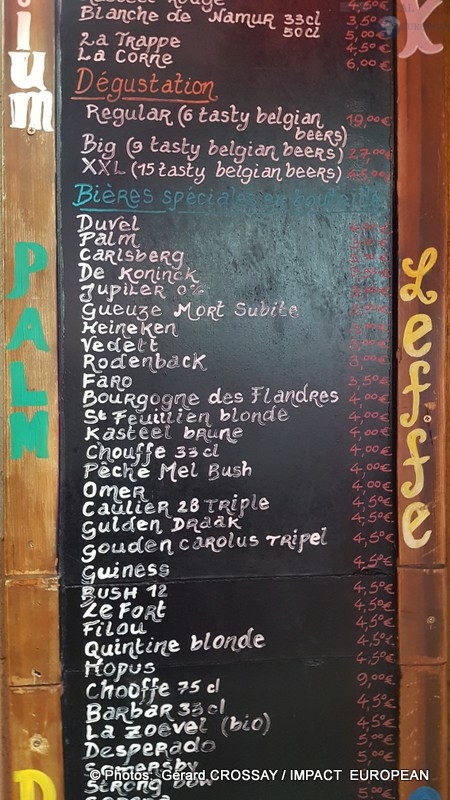 Blanche de Namur 33cl 3,50€
50cl 5,00€
La Trappe 4,50€
La Corne 6,00€
Dégustation
Regular (6 tasty belgian beers) 19,00€
Big (9 tasty belgian beers) 27,00€
XXL (15 tasty belgian beers) 45,00€
Bières spéciales en bouteille
Duvel
Palm
Carlsberg
De Koninck
Jupiler 0%
Gueuze Mort Subite
Heineken
Vedett
Rodenback 3,00€
Faro 3,50€
Bourgogne des Flandres 4,00€
St Feuillien blonde 4,00€
Kasteel brune 4,00€
Chouffe 33 cl 4,00€
Pêche Mel Bush 4,00€
Omer 4,00€
Caulier 28 Triple 4,50€
Gulden Draak 4,50€
Gouden Carolus Tripel 4,50€
Guiness 4,5€
Bush 12 4,50€
Le Fort 4,50€
Filou 4,50€
Quintine blonde 4,50€
Hopus 4,5€
Chouffe 75 cl 9,00€
Barbar 33 cl 4,50€
La Zoevel (bio) 4,50€
Desperado 5,00€
Somersby 5,00€
Strong bow
ium
PALM
Leffe
© Photos: Gérard CROSSAY / IMPACT EUROPEAN